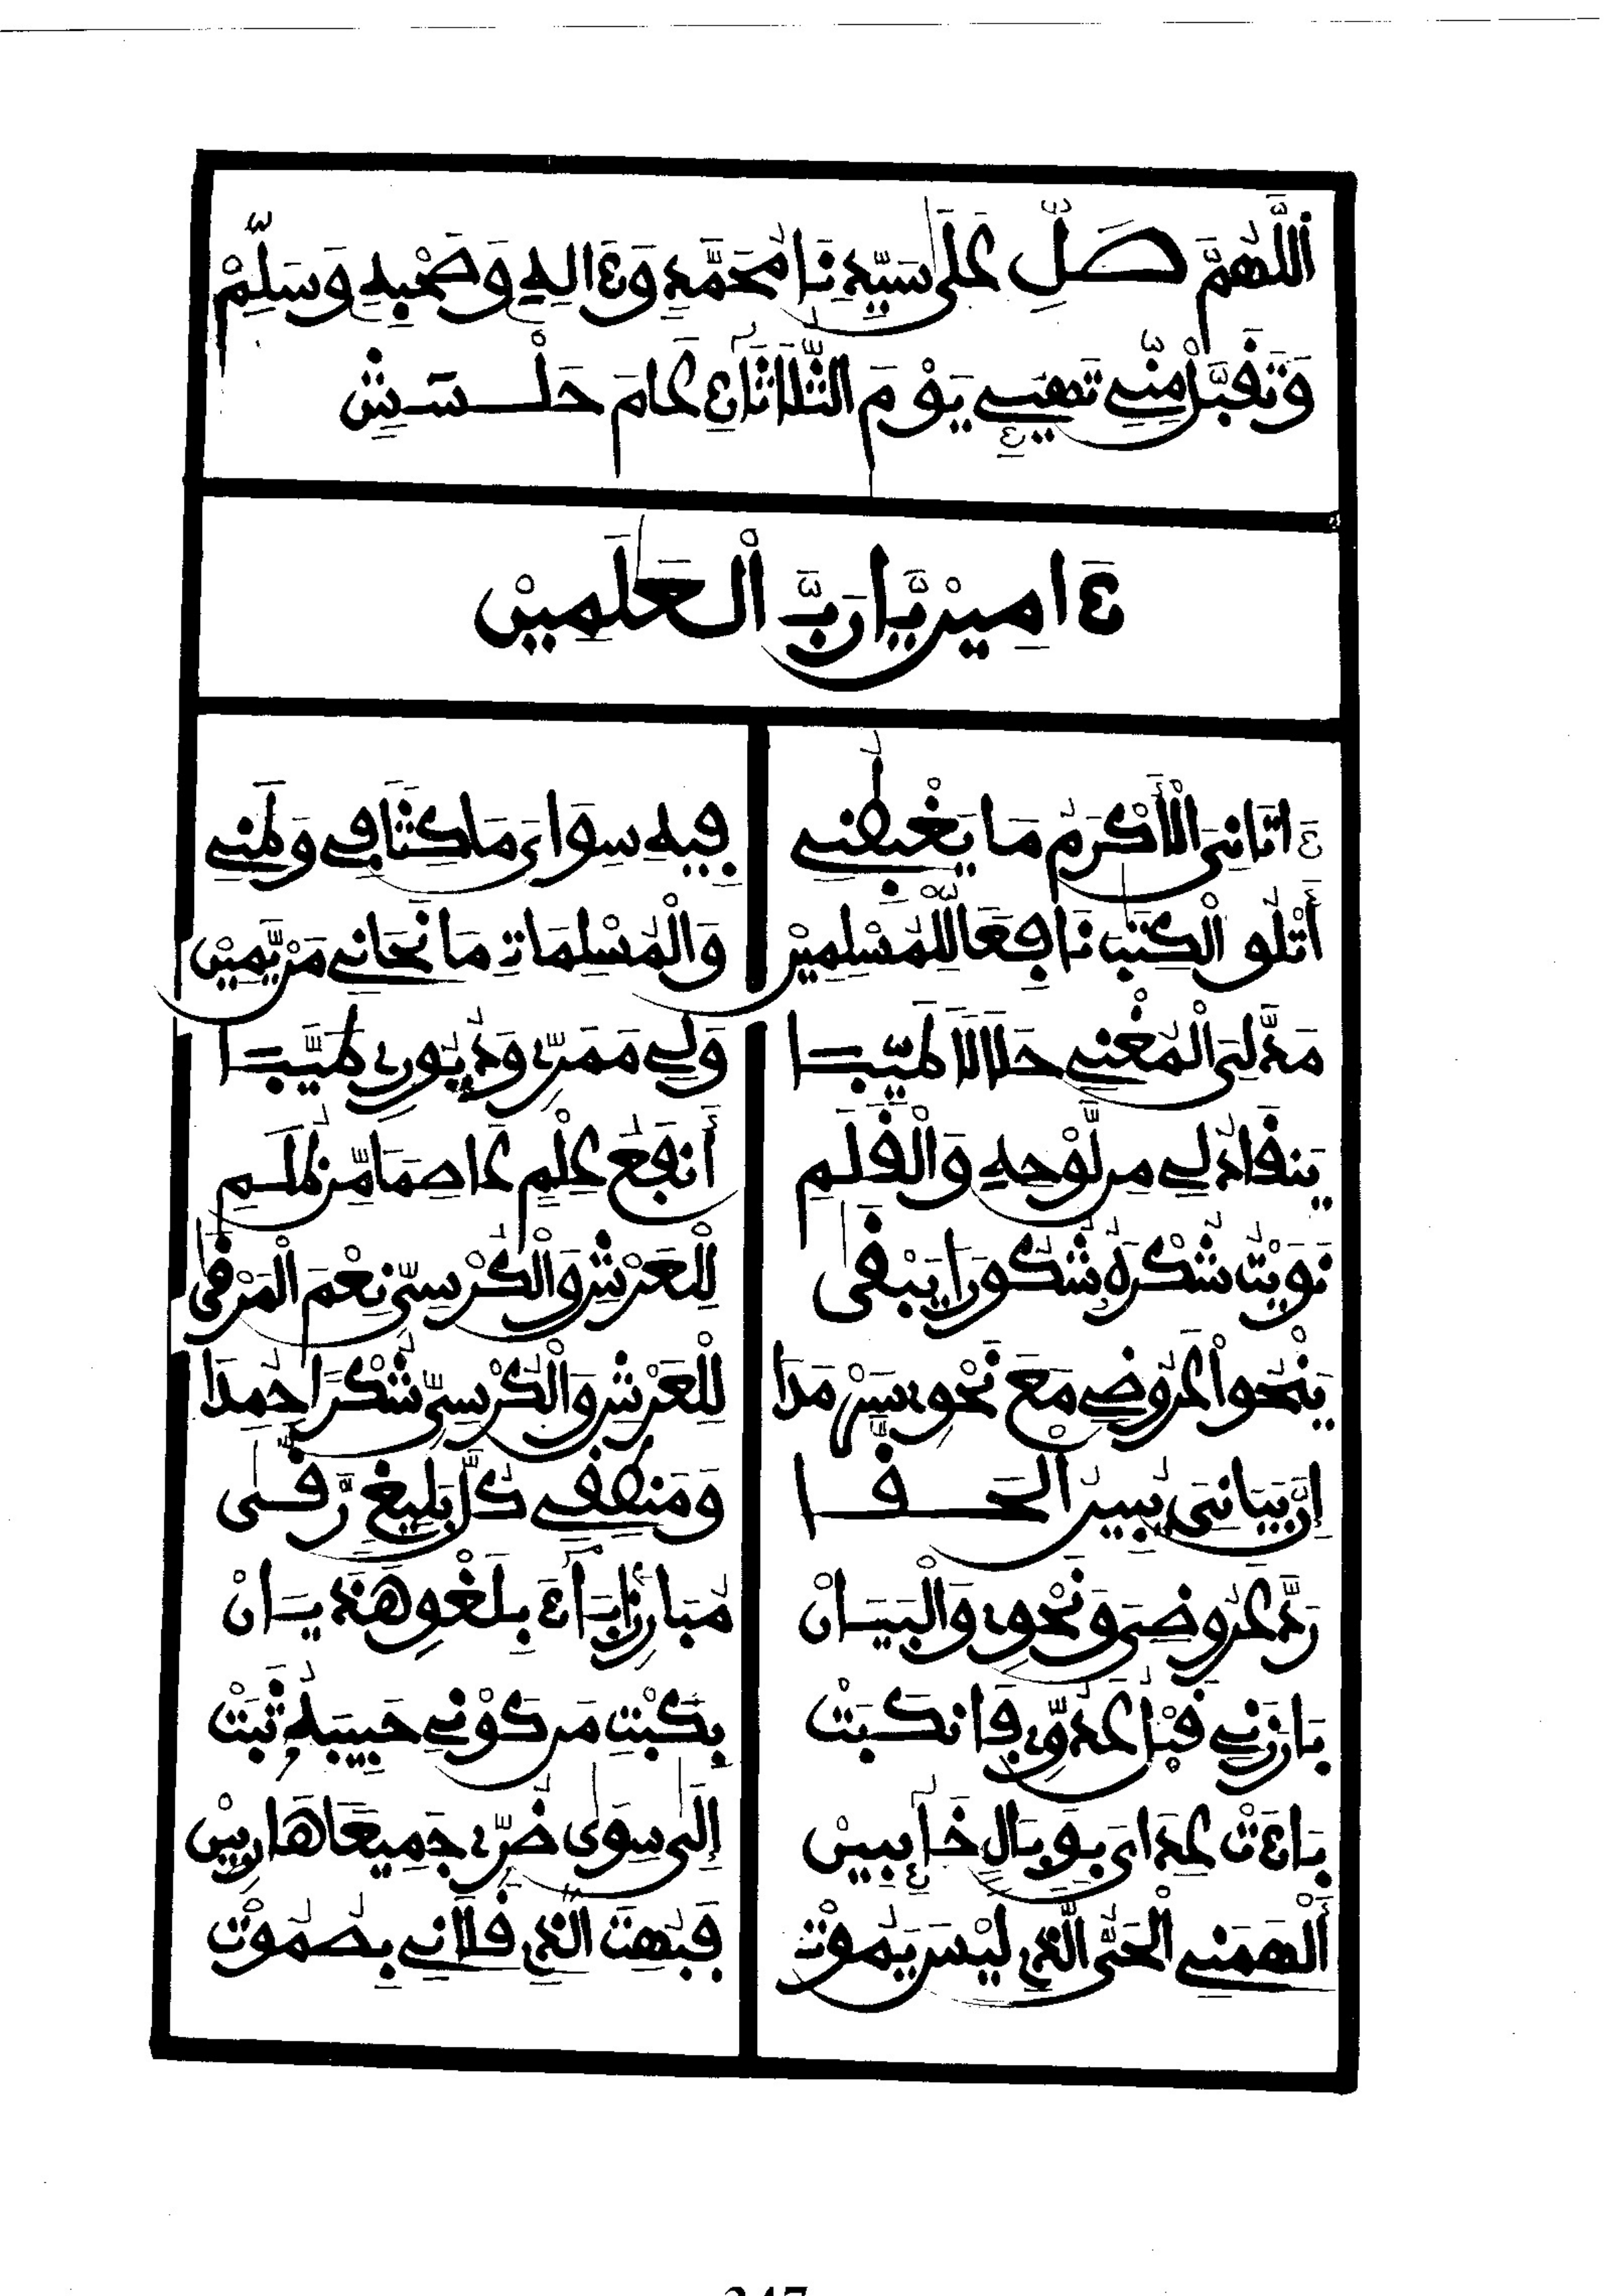 اَللَّهُمَّ صَلِّ عَلَى سَيِّدِنَا مُحَمَّدٍ وَءَالِهِ وَصَحْبِهِ وَسَلِّمْ
وَتَقَبَّلْ مِنِّي تَهْيِئِي يَوْمَ الثُّلَاثَاءِ عَامَ حَلْسَشٍ
ءَامِينْ يَّا رَبَّ الْعَلَمِينْ
ءَاتَانِىَ الْأَكْرَمُ مَا يَغْبِطُنِي فِيهِ سِوَاىَ مَا كَثَانِي وَطَنِي
أَتْلُو الْكِتَبَ نَافِعًا لِّلْمُسْلِمِينْ وَالْمُسْلِمَاتِ مَا نَحَانِي مَن يَّمِينْ
مَدَّ لِىَ الْمُغْنِي حَلَالًا طَيِّبَا وَلِي مَمَرِّى وَدُيُورِى طَيَّبَا
يَنْقَادُ لِي مِن لَّوْحِهِ وَالْقَلَمِ أَنْفَعُ عِلْمٍ عَاصِمًا مِّن ظُلَمِ
نَوَيْتُ شُكْرَهُ شُكُورًا يَبْقَى لِلْعَرْشِ وَالْكُرْسِيِّ نِعْمَ الْمَرْقَى
يَنْحُوا عَرُوضِي مَعَ نَحْوِى سَرْمَدَا لِلْعَرْشِ وَالْكُرْسِيِّ شُكْرًا حُمِدَا
إِنَّ بَيَانِىَ يُبِينُ الْحَقَّا وَمَنْطِقِي كُلَّ بَلِيغٍ رَّقَّى
رَدَّ عَرُوضِى وَنَحْوِى وَالْبَيَانْ مُبَارِزًا بَاءَ بِلَغْوِ هَذَيَانْ
بَارَزَنِي قَبْلُ عَدُوِّى فَانْكَبَتْ بِكَبْتِ مَن كَوْنِي حَبِيبَهُ ثَبَتْ
بَاءَتْ عِدَاىَ بِوَبَالٍ خَائِبِينْ إِلَى سِوَى ضُرِّى جَمِيعًا هَارِبِينْ
أَلْهَمَنِي الْحَىُّ الَّذِى لَيْسَ يَمُوتْ فَبُهِتَ الَّذِى قَلَانِي بِصُمُوتْ